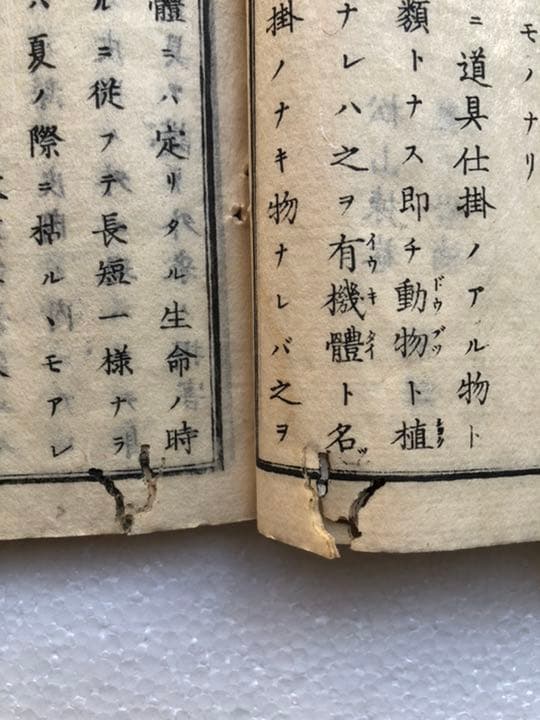 モノナリ
ニ道具仕掛ノアル物ト
類トナス即チ動物ト植
ドウブツ
ショク
ナレハ之ヲ有機體ト名
イウキタイ
ツ
掛ノナキ物ナレバ之ヲ
體ニハ定リタル生命ノ時
ルニ従フテ長短一様ナラ
ハ夏ノ際ニ枯ルヽモアレ